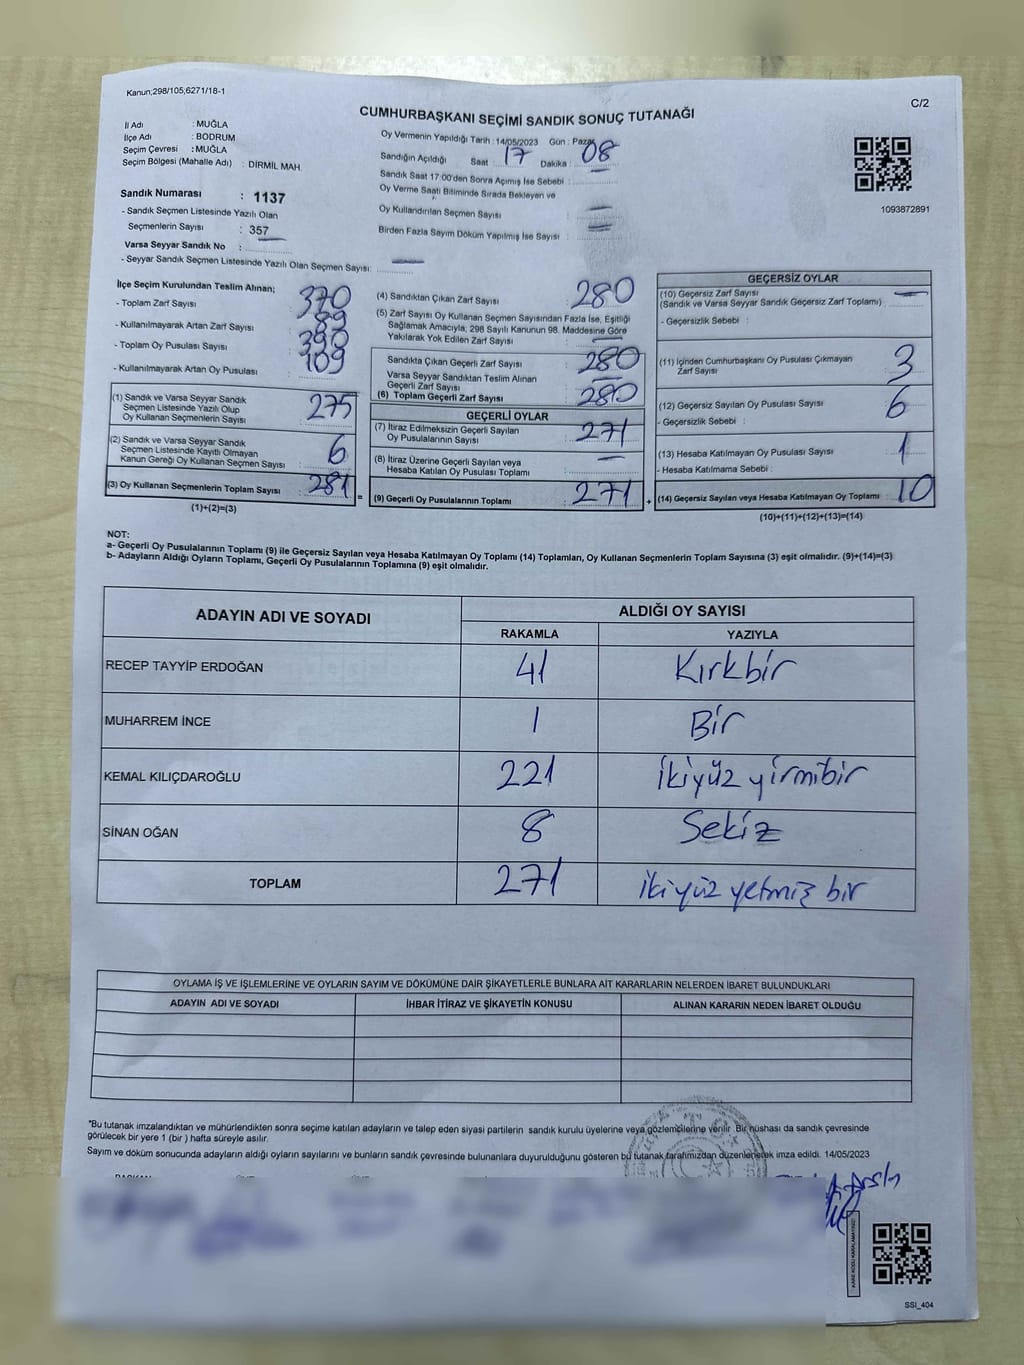 Kanun;298/105,6271/18-1
C/2
CUMHURBAŞKANI SEÇİMİ SANDIK SONUÇ TUTANAĞI
İl Adı : MUĞLA
İlçe Adı : BODRUM
Seçim Çevresi : MUĞLA
Seçim Bölgesi (Mahalle Adı) : DİRMİL MAH.
Sandık Numarası : 1137
- Sandık Seçmen Listesinde Yazılı Olan
Seçmenlerin Sayısı : 357
Varsa Seyyar Sandık No :
- Seyyar Sandık Seçmen Listesinde Yazılı Olan Seçmen Sayısı: —
Oy Vermenin Yapıldığı Tarih : 14/05/2023 Gün : Pazar
Sandığın Açıldığı Saat : 17 Dakika : 08
Sandık Saat 17:00'den Sonra Açımış İse Sebebi : —
Oy Verme Saati Bitiminde Sırada Bekleyen ve
Oy Kullandırılan Seçmen Sayısı : —
Birden Fazla Sayım Döküm Yapılmış İse Sayısı : —
1093872891
İlçe Seçim Kurulundan Teslim Alınan;
- Toplam Zarf Sayısı : 370
- Kullanılmayarak Artan Zarf Sayısı : 89
- Toplam Oy Pusulası Sayısı : 390
- Kullanılmayarak Artan Oy Pusulası : 109
(1) Sandık ve Varsa Seyyar Sandık
Seçmen Listesinde Yazılı Olup
Oy Kullanan Seçmenlerin Sayısı : 275
(2) Sandık ve Varsa Seyyar Sandık
Seçmen Listesinde Kayıtlı Olmayan
Kanun Gereği Oy Kullanan Seçmen Sayısı : 6
(3) Oy Kullanan Seçmenlerin Toplam Sayısı : 281
(1)+(2)=(3)
(4) Sandıktan Çıkan Zarf Sayısı : 280
(5) Zarf Sayısı Oy Kullanan Seçmen Sayısından Fazla İse, Eşitliği
Sağlamak Amacıyla, 298 Sayılı Kanunun 98. Maddesine Göre
Yakılarak Yok Edilen Zarf Sayısı : —
Sandıkta Çıkan Geçerli Zarf Sayısı : 280
Varsa Seyyar Sandıktan Teslim Alınan
Geçerli Zarf Sayısı : —
(6) Toplam Geçerli Zarf Sayısı : 280
=
GEÇERLİ OYLAR
(7) İtiraz Edilmeksizin Geçerli Sayılan
Oy Pusulalarının Sayısı : 271
(8) İtiraz Üzerine Geçerli Sayılan veya
Hesaba Katılan Oy Pusulası Toplamı : —
(9) Geçerli Oy Pusulalarının Toplamı : 271
+
GEÇERSİZ OYLAR
(10) Geçersiz Zarf Sayısı
(Sandık ve Varsa Seyyar Sandık Geçersiz Zarf Toplamı) : —
- Geçersizlik Sebebi :
(11) İçinden Cumhurbaşkanı Oy Pusulası Çıkmayan
Zarf Sayısı : 3
(12) Geçersiz Sayılan Oy Pusulası Sayısı : 6
- Geçersizlik Sebebi :
(13) Hesaba Katılmayan Oy Pusulası Sayısı : 1
- Hesaba Katılmama Sebebi :
(14) Geçersiz Sayılan veya Hesaba Katılmayan Oy Toplamı : 10
(10)+(11)+(12)+(13)=(14)
NOT:
a- Geçerli Oy Pusulalarının Toplamı (9) ile Geçersiz Sayılan veya Hesaba Katılmayan Oy Toplamı (14) Toplamları, Oy Kullanan Seçmenlerin Toplam Sayısına (3) eşit olmalıdır. (9)+(14)=(3)
b- Adayların Aldığı Oyların Toplamı, Geçerli Oy Pusulalarının Toplamına (9) eşit olmalıdır.
ADAYIN ADI VE SOYADI ALDIĞI OY SAYISI
RAKAMLA YAZIYLA
RECEP TAYYİP ERDOĞAN 41 Kırkbir
MUHARREM İNCE 1 Bir
KEMAL KILIÇDAROĞLU 221 İkiyüz yirmibir
SİNAN OĞAN 8 Sekiz
TOPLAM 271 ikiyüz yetmiş bir
OYLAMA İŞ VE İŞLEMLERİNE VE OYLARIN SAYIM VE DÖKÜMÜNE DAİR ŞİKAYETLERLE BUNLARA AİT KARARLARIN NELERDEN İBARET BULUNDUKLARI
ADAYIN ADI VE SOYADI İHBAR İTİRAZ VE ŞİKAYETİN KONUSU ALINAN KARARIN NEDEN İBARET OLDUĞU
"Bu tutanak imzalandıktan ve mühürlendikten sonra seçime katılan adayların ve talep eden siyasi partilerin sandık kurulu üyelerine veya gözlemcilerine verilir. Bir nüshası da sandık çevresinde
görülecek bir yere 1 (bir ) hafta süreyle asılır.
Sayım ve döküm sonucunda adayların aldığı oyların sayılarını ve bunların sandık çevresinde bulunanlara duyurulduğunu gösteren bu tutanak tarafımızdan düzenlenerek imza edildi. 14/05/2023
SSI_404